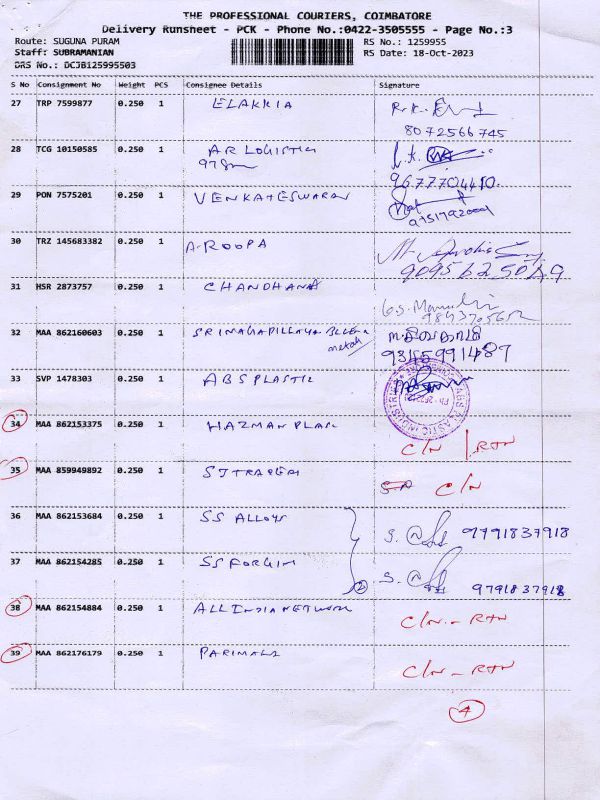 THE PROFESSIONAL COURIERS, COIMBATORE
Delivery Runsheet - PCK - Phone No.:0422-3505555 - Page No.:3
Route: SUGUNA PURAM RS No.: 1259955
Staff: SUBRAMANIAN RS Date: 18-Oct-2023
DRS No.: DCJB125995503
S No Consignment No Weight PCS Consignee Details Signature
27 TRP 7599877 0.250 1 ELAKKIA
8072566745
28 TCG 10150585 0.250 1 AR LOGISTIC
29 PON 7575201 0.250 1 VENKATESWARAN
30 TRZ 145683382 0.250 1 A-ROOPA
31 HSR 2873757 0.250 1 CHANDHANA
32 MAA 862160603 0.250 1
metals
9345991487
33 SVP 1478303 0.250 1 ABS PLASTIC
34 MAA 862153375 0.250 1 HAZMAN C/N | RTN
35 MAA 859949892 0.250 1 C/N
36 MAA 862153684 0.250 1 SS ALLOYS 9791837918
37 MAA 862154285 0.250 1 SS FORGIN
2 9791837918
38 MAA 862154884 0.250 1 ALL INDIA NETWORK C/N - RTN
39 MAA 862176179 0.250 1 C/N - RTN
4